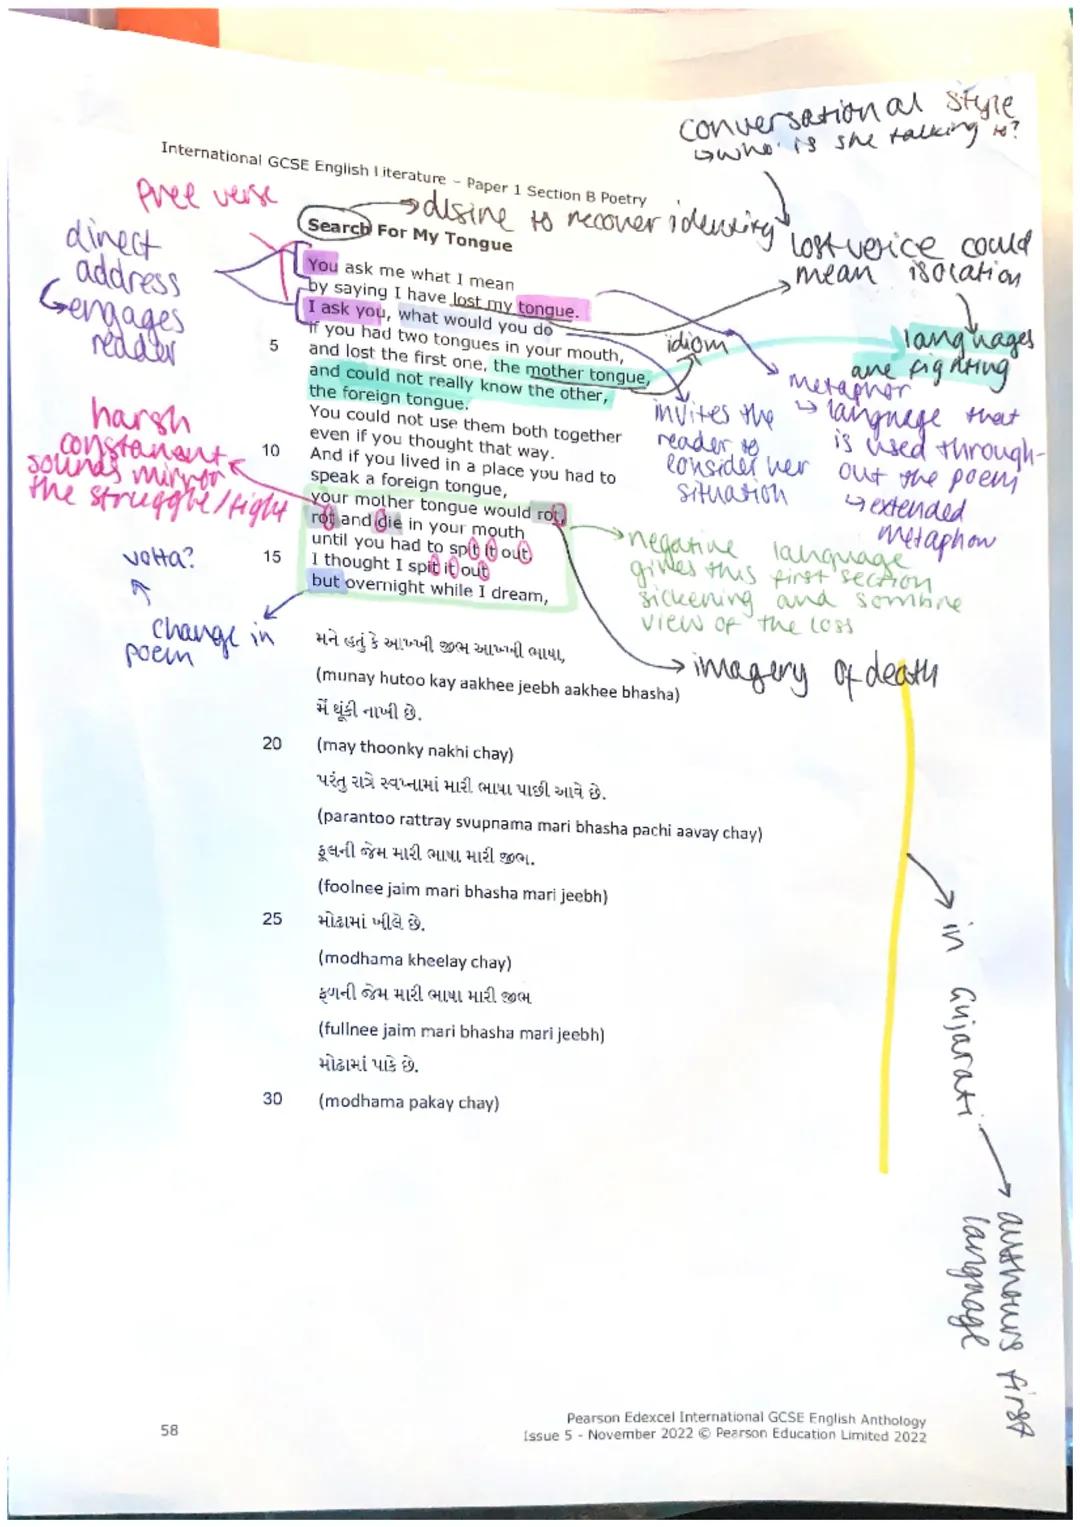 conversational style
↳who is she talking to?
International GCSE English Literature – Paper 1 Section B Poetry
free verse
desire to recover identity
Search For My Tongue
direct
address
↳engages
reader
lost voice could
mean isolation
You ask me what I mean
by saying I have lost my tongue.
I ask you, what would you do
if you had two tongues in your mouth,
5 and lost the first one, the mother tongue,
and could not really know the other,
the foreign tongue.
You could not use them both together
even if you thought that way.
10 And if you lived in a place you had to
speak a foreign tongue,
your mother tongue would rot,
rot and die in your mouth
until you had to spit it out.
15 I thought I spit it out
but overnight while I dream,
idiom
languages
are fighting
metaphor
↳ language that
is used through-
out the poem
↳ extended
metaphor
invites the
reader to
consider her
situation
harsh
constanant
sounds mirror
the struggle/fight
negative language
gives this first section
sickening and sombre
view of the loss
volta?
change in
poem
imagery of death
મને હતું કે આખ્ખી જીભ આખ્ખી ભાષા,
(munay hutoo kay aakhee jeebh aakhee bhasha)
મેં થૂંકી નાખી છે.
20 (may thoonky nakhi chay)
પરંતુ રાત્રે સ્વપ્નામાં મારી ભાષા પાછી આવે છે.
(parantoo rattray svupnama mari bhasha pachi aavay chay)
ફૂલની જેમ મારી ભાષા મારી જીભ.
(foolnee jaim mari bhasha mari jeebh)
25 મોઢામાં ખીલે છે.
(modhama kheelay chay)
ફળની જેમ મારી ભાષા મારી જીભ
(fullnee jaim mari bhasha mari jeebh)
મોઢામાં પાકે છે.
30 (modhama pakay chay)
in Gujarati
authours first
language
58
Pearson Edexcel International GCSE English Anthology
Issue 5 - November 2022 © Pearson Education Limited 2022